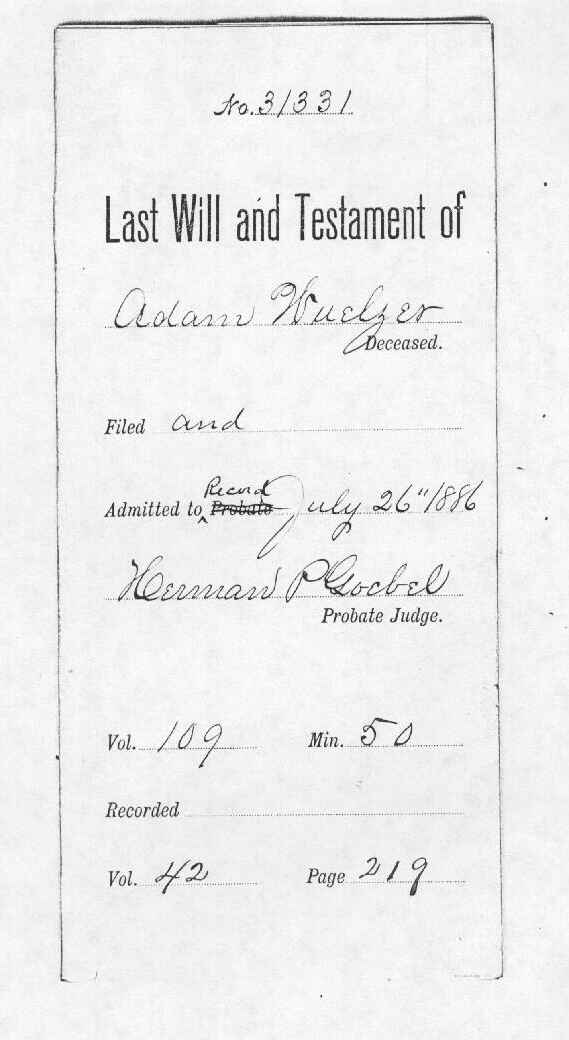 No. 31331
Last Will and Testament of
Adam Wuelzer
Deceased.
Filed and
Record
Admitted to Probate July 26" 1886
Herman P Goebel
Probate Judge.
Vol. 109 Min. 50
Recorded
Vol. 42 Page 219